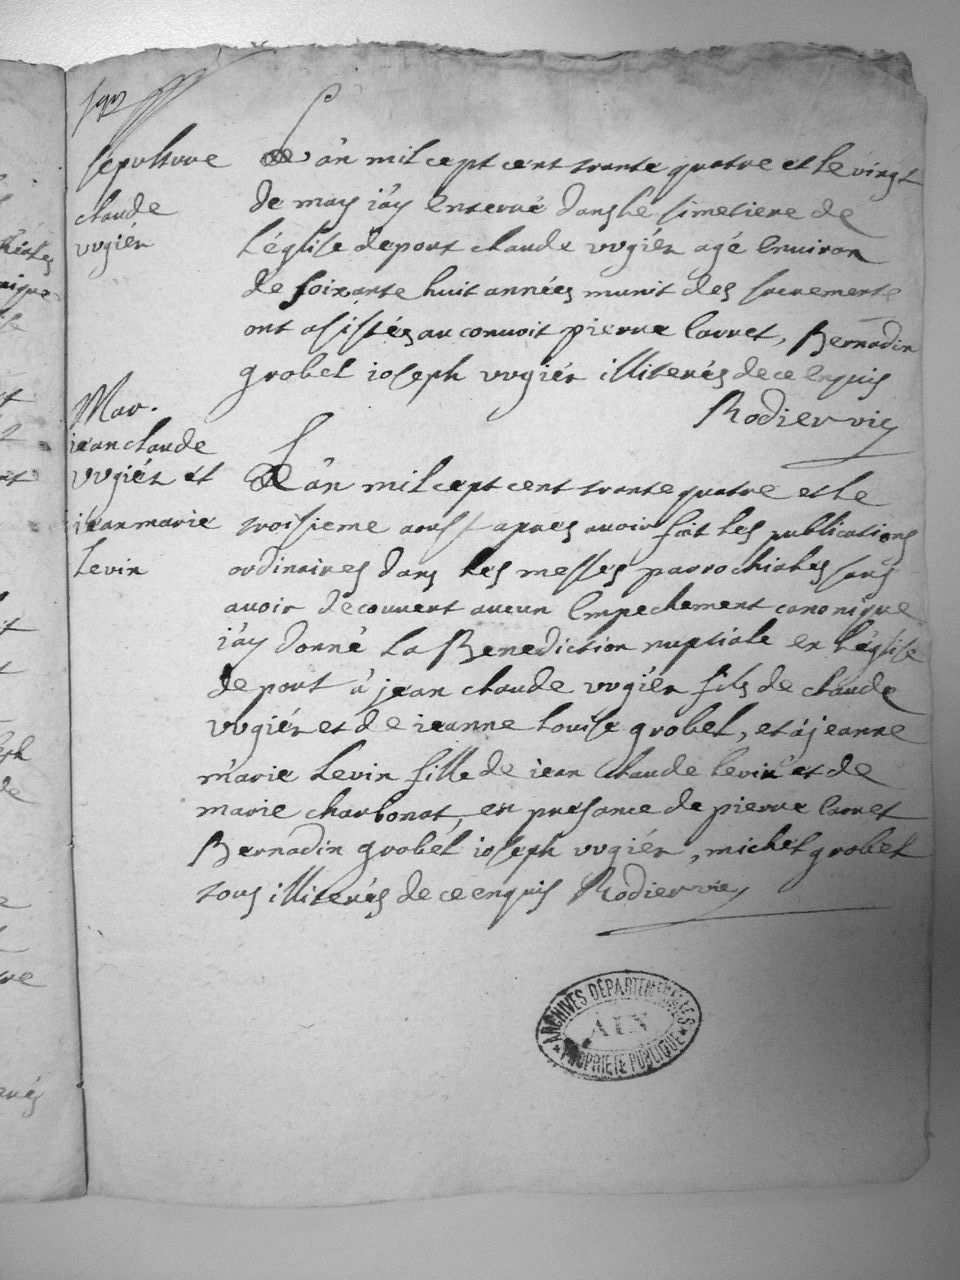 sepulture
claude
vugiér
L'an mil cept cent trante quatre et le vingt
de may i'ay enterré dans le simetiere de
l'église de port claude vugiér agé environ
de soixante huit années munit des sacrements
ont assistés au convoit pierre lavret, Bernadin
grobel ioseph vugiér illiterés de ce enquis
Rodier vic
Mar.
iean claude
vugiér et
iean marie
levin
L'an mil cept cent trante quatre et le
troisieme aoust apres avoir fait les publications
ordinaires dans les messes parrochiales sans
avoir découvert aucun empechement canonique
i'ay donné la Benediction nuptiale en l'église
de port à jean claude vugiér fils de claude
vugiér et de ieanne louise grobel, et à jeanne
marie levin fille de iean claude levin et de
marie charbonat, en presance de pierre lavret
Bernadin grobel ioseph vugiér, michel grobel
tous illiterés de ce enquis Rodier vic
ARCHIVES DÉPARTEMENTALES
AIN
PROPRIETE PUBLIQUE